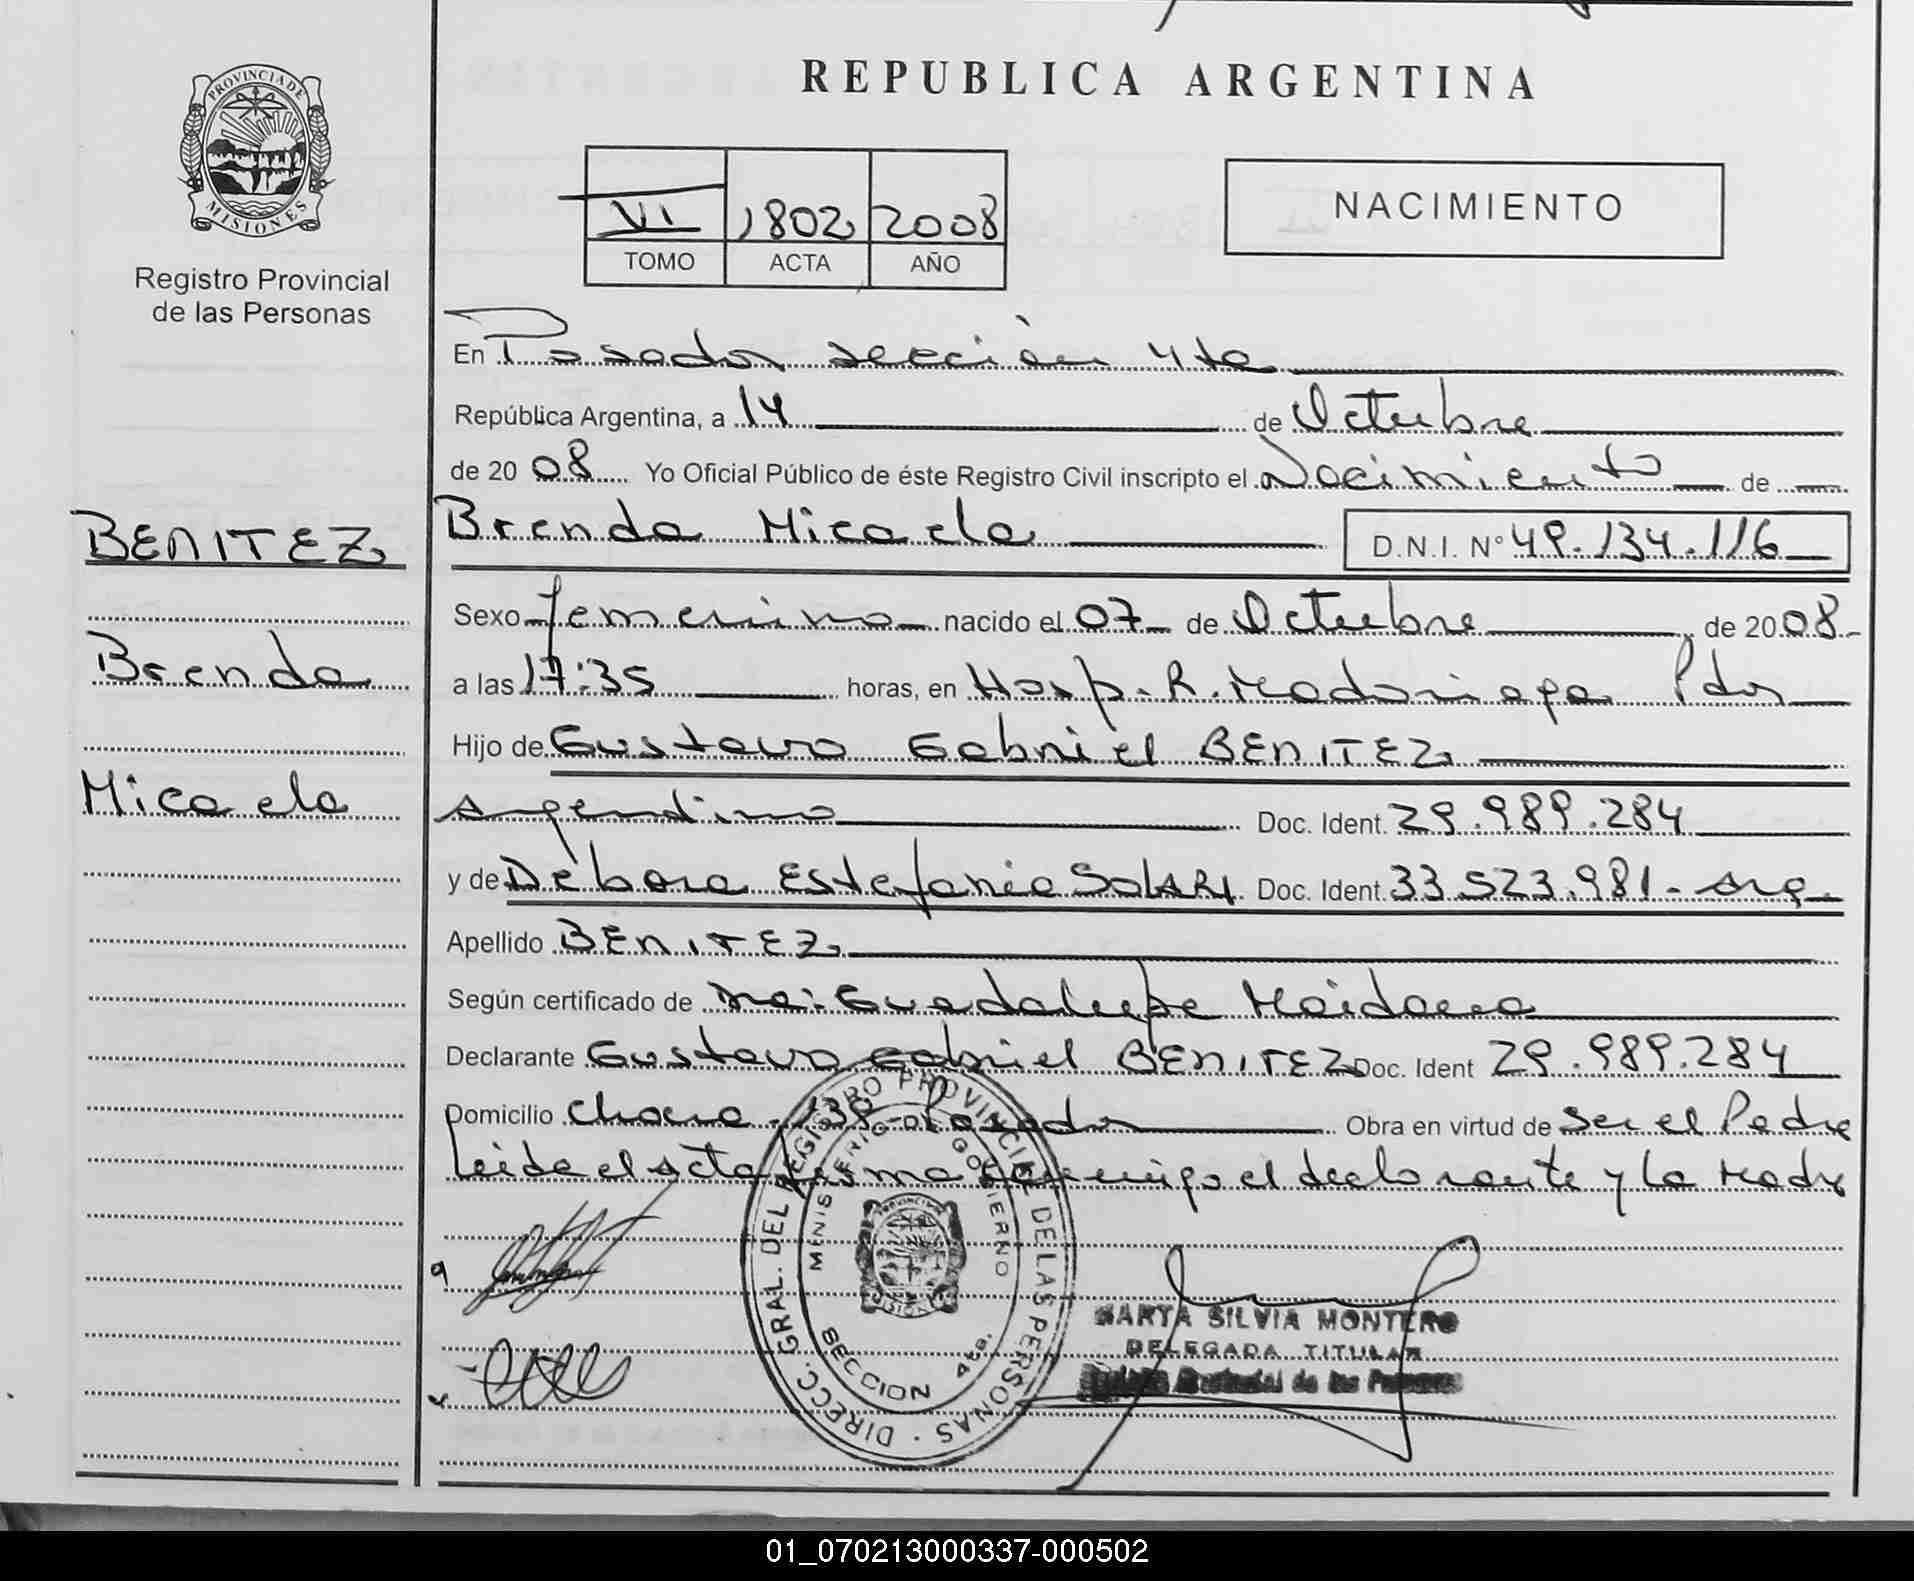 REPUBLICA ARGENTINA
PROVINCIA DE
MISIONES
Registro Provincial
de las Personas
VI 1802 2008
TOMO ACTA AÑO
NACIMIENTO
En Posadas sección 4ta
República Argentina, a 14 de Octubre
de 2008 Yo Oficial Público de éste Registro Civil inscripto el Nacimiento de
BENITEZ
Brenda Micaela D.N.I. N° 49.134.116
Brenda
Micaela
Sexo femenino nacido el 07 de Octubre de 2008
a las 17:35 horas, en Hosp. R. Madariaga Pdas
Hijo de Gustavo Gabriel BENITEZ
Argentino Doc. Ident. 29.989.284
y de Débora Estefania SolARI Doc. Ident. 33.523.981 - Arg.
Apellido BENITEZ
Según certificado de Guadalupe Maidana
Declarante Gustavo Gabriel BENITEZ Doc. Ident 29.989.284
Domicilio Chacra 139 - Posadas Obra en virtud de Ser el Padre
Leida el Acta firma conmigo el declarante y la Madre
DIRECC. GRAL. DEL REGISTRO PROVINCIAL DE LAS PERSONAS
MINISTERIO DE GOBIERNO
SECCION 4ta.
MARTA SILVIA MONTERO
DELEGADA TITULAR
Provincial de las Personas
01_070213000337-000502